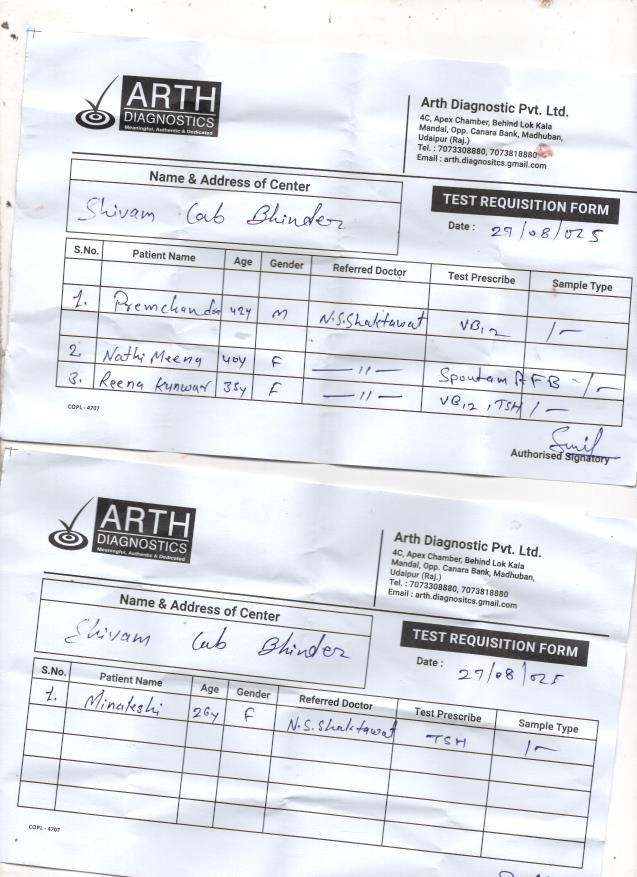 ARTH
DIAGNOSTICS
Meaningful, Authentic & Dedicated
Arth Diagnostic Pvt. Ltd.
4C, Apex Chamber, Behind Lok Kala
Mandal, Opp. Canara Bank, Madhuban,
Udaipur (Raj.)
Tel. : 7073308880, 7073818880
Email : arth.diagnositcs.gmail.com
Name & Address of Center
Shivam Lab Bhinder
TEST REQUISITION FORM
Date : 27/08/025
S.No. Patient Name Age Gender Referred Doctor Test Prescribe Sample Type
1. Premchanda 42y M N.S.Shaktawat VB12 1-
2. Nathi Meena 40y F -11- Spoutam AFB - 1-
3. Reena Kunwar 35y F -11- VB12, TSH 1-
COPL - 4707
Authorised Signatory
ARTH
DIAGNOSTICS
Meaningful, Authentic & Dedicated
Arth Diagnostic Pvt. Ltd.
4C, Apex Chamber, Behind Lok Kala
Mandal, Opp. Canara Bank, Madhuban,
Udaipur (Raj.)
Tel. : 7073308880, 7073818880
Email : arth.diagnositcs.gmail.com
Name & Address of Center
Shivam Lab Bhinder
TEST REQUISITION FORM
Date : 27/08/025
S.No. Patient Name Age Gender Referred Doctor Test Prescribe Sample Type
1. Minakshi 26y F N.S.Shaktawat TSH 1-
COPL - 4707